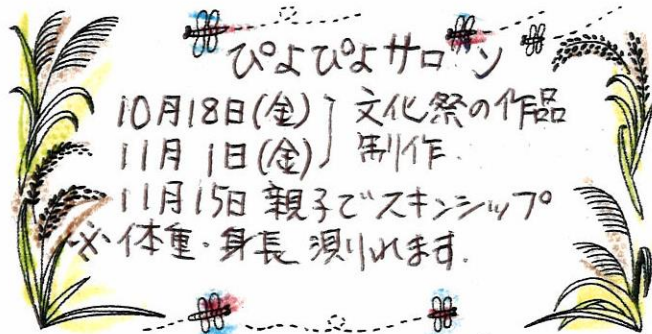 ぴよぴよサロン
10月18日(金) 文化祭の作品
11月1日(金) 制作.
11月15日 親子でスキンシップ
※体重・身長 測れます.